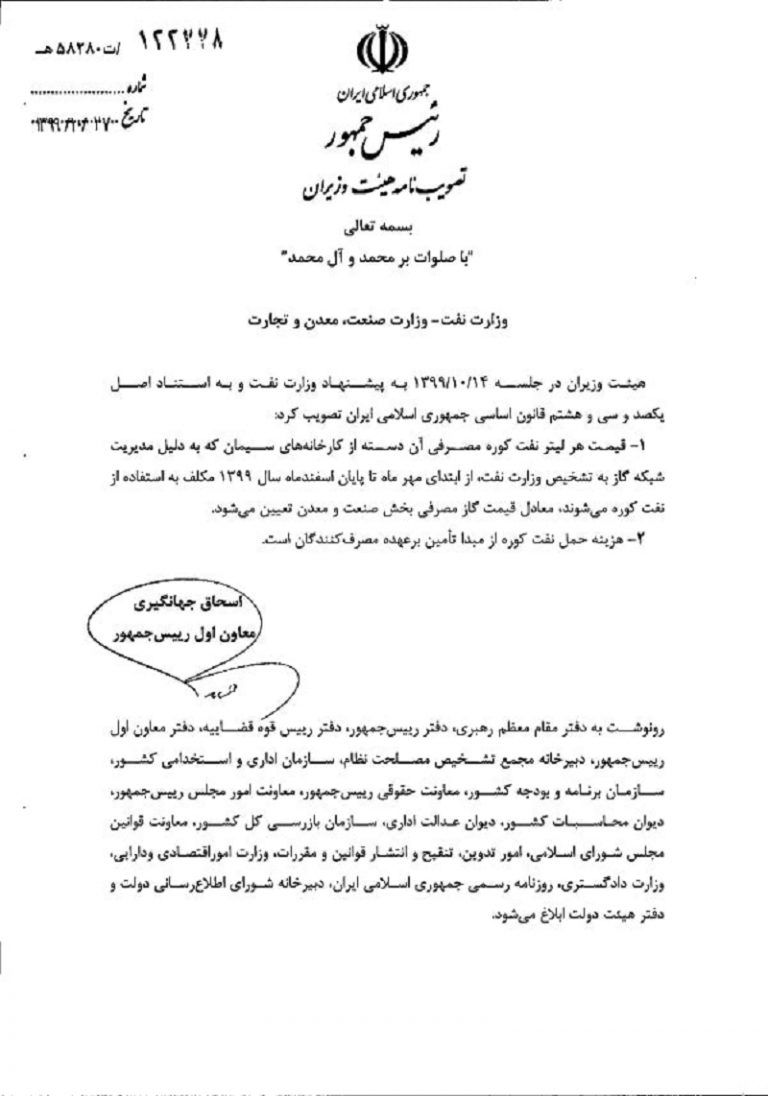 ۱۲۲۷۷۸ /ت۵۸۲۸۰هـ
جمهوری اسلامی ایران
شماره
رئیس جمهور
تاریخ
تصویب نامه هیئت وزیران
بسمه تعالی
"با صلوات بر محمد و آل محمد"
وزارت نفت- وزارت صنعت، معدن و تجارت
هیئت وزیران در جلسه ۱۳۹۹/۱۰/۱۴ به پیشنهاد وزارت نفت و به استناد اصل
یکصد و سی و هشتم قانون اساسی جمهوری اسلامی ایران تصویب کرد:
۱- قیمت هر لیتر نفت کوره مصرفی آن دسته از کارخانه‌های سیمان که به دلیل مدیریت
شبکه گاز به تشخیص وزارت نفت، از ابتدای مهر ماه تا پایان اسفندماه سال ۱۳۹۹ مکلف به استفاده از
نفت کوره می‌شوند، معادل قیمت گاز مصرفی بخش صنعت و معدن تعیین می‌شود.
۲- هزینه حمل نفت کوره از مبدا تأمین برعهده مصرف‌کنندگان است.
اسحاق جهانگیری
معاون اول رییس‌جمهور
رونوشت به دفتر مقام معظم رهبری، دفتر رییس‌جمهور، دفتر رییس قوه قضاییه، دفتر معاون اول
رییس‌جمهور، دبیرخانه مجمع تشخیص مصلحت نظام، سازمان اداری و استخدامی کشور،
سازمان برنامه و بودجه کشور، معاونت حقوقی رییس‌جمهور، معاونت امور مجلس رییس‌جمهور،
دیوان محاسبات کشور، دیوان عدالت اداری، سازمان بازرسی کل کشور، معاونت قوانین
مجلس شورای اسلامی، امور تدوین، تنقیح و انتشار قوانین و مقررات، وزارت اموراقتصادی ودارایی،
وزارت دادگستری، روزنامه رسمی جمهوری اسلامی ایران، دبیرخانه شورای اطلاع‌رسانی دولت و
دفتر هیئت دولت ابلاغ می‌شود.